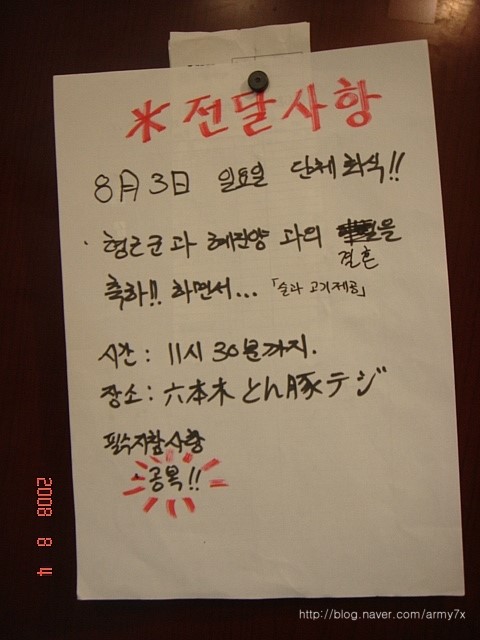 ※ 전달사항
8月 3日 일요일 단체 회식!!
· 형근군과 혜진양 과의 을
결혼
축하!! 하면서... 「술과 고기제공」
시간 : 11시 30분까지.
장소 : 六本木 とん豚テジ
필수지참사항
공복!!
2008 8 4
http://blog.naver.com/army7x